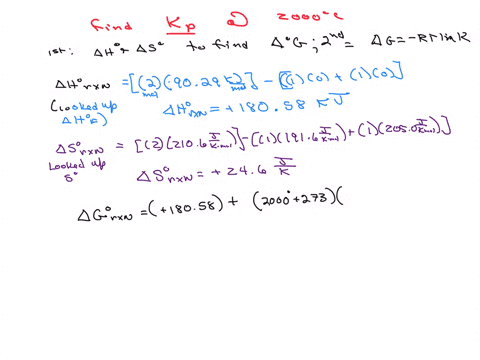 find Kp @ 2000°C
1st: ΔH° + ΔS° to find Δ°G; 2nd= ΔG=-RTlnK
ΔH°rxn =[(2)(90.29 KJ/mol)] - [(1)(0) + (1)(0)]
(Looked up ΔH°f)
ΔH°rxn = +180.58 KJ
ΔS°rxn = [(2)(210.6 J/K·mol)]-[(1)(191.6 J/K·mol)+(1)(205.0 J/K·mol)]
Looked up S°
ΔS°rxn = +24.6 J/K
ΔG°rxn =(+180.58) + (2000°+273)(